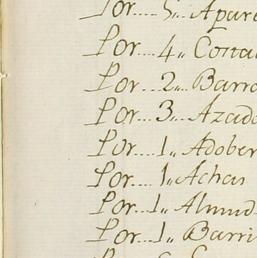 Por.... 5,, Apar
Por... 4,, Corta
Por... 2,, Barr
Por... 3,, Azad
Por.... 1,, Adober
Por.... 1,, Achas
Por... 1,, Almud
Por... 1,, Barri
Por